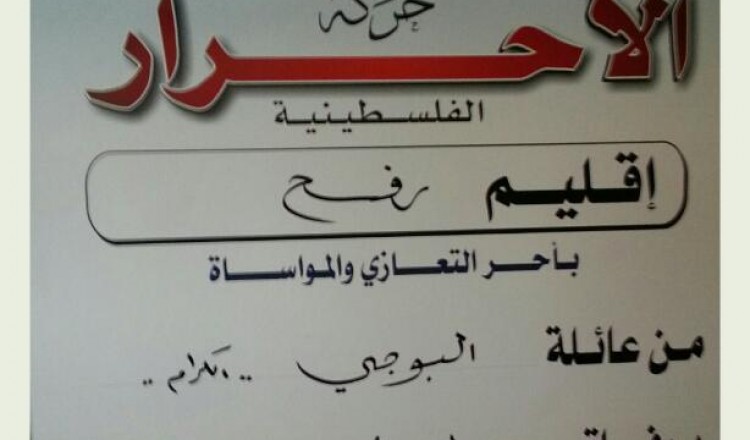 حركة
الأحرار
الفلسطينية
إقليم رفح
بأحر التعازي والمواساة
من عائلة البوجي .. الكرام ..